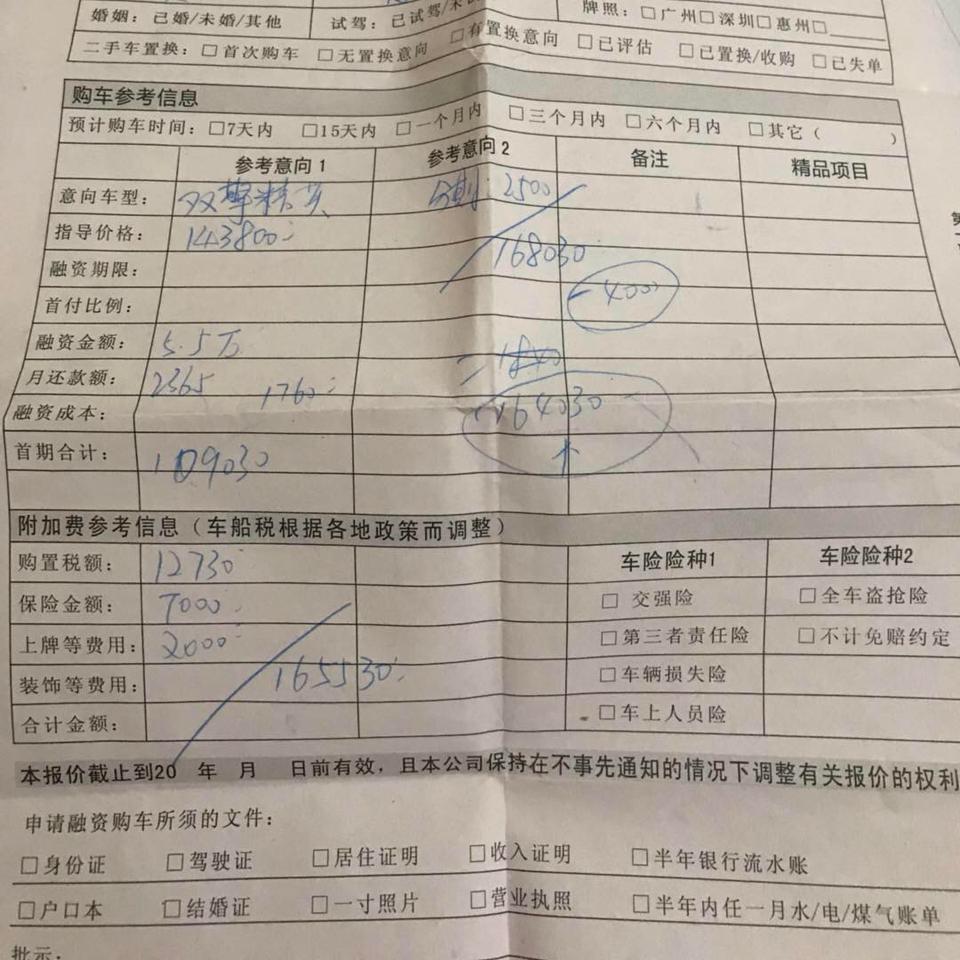 婚姻：已婚/未婚/其他 试驾：已试驾/未试 牌照：□广州□深圳□惠州□
二手车置换：□首次购车 □无置换意向 □有置换意向 □已评估 □已置换/收购 □已失单
购车参考信息
预计购车时间：□7天内 □15天内 □一个月内 □三个月内 □六个月内 □其它（ ）
参考意向1 参考意向2 备注 精品项目
意向车型： 双擎精英 2500
指导价格： 143800
168030
融资期限：
-4000
首付比例：
融资金额： 5.5万
月还款额： 2365 1760
融资成本： 164030
首期合计： 109030
附加费参考信息（车船税根据各地政策而调整）
购置税额： 12730 车险险种1 车险险种2
保险金额： 7000 □ 交强险 □全车盗抢险
上牌等费用： 2000 □第三者责任险 □不计免赔约定
装饰等费用： 165530 □车辆损失险
合计金额： □车上人员险
本报价截止到20 年 月 日前有效，且本公司保持在不事先通知的情况下调整有关报价的权利
申请融资购车所须的文件：
□身份证 □驾驶证 □居住证明 □收入证明 □半年银行流水账
□户口本 □结婚证 □一寸照片 □营业执照 □半年内任一月水/电/煤气账单
批示：